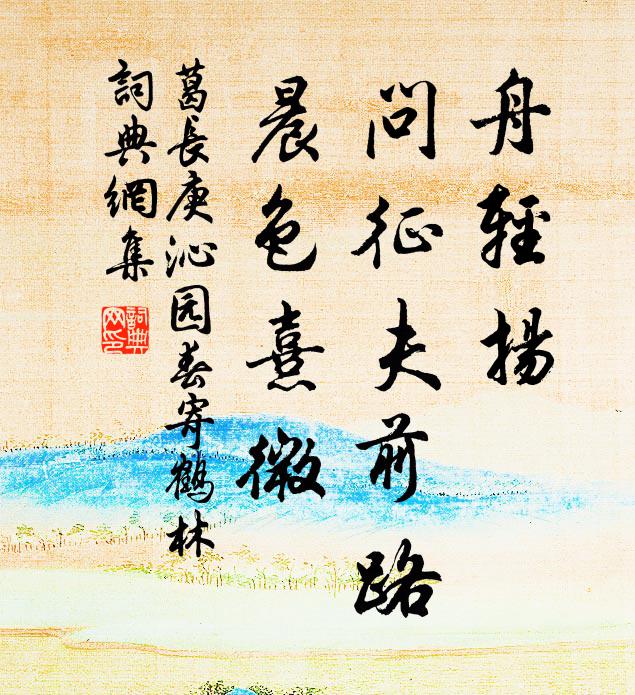 舟輕揚
問征夫前路
晨色熹微
葛長庚沁园春寄鶴林
詞典網集
詞典网印